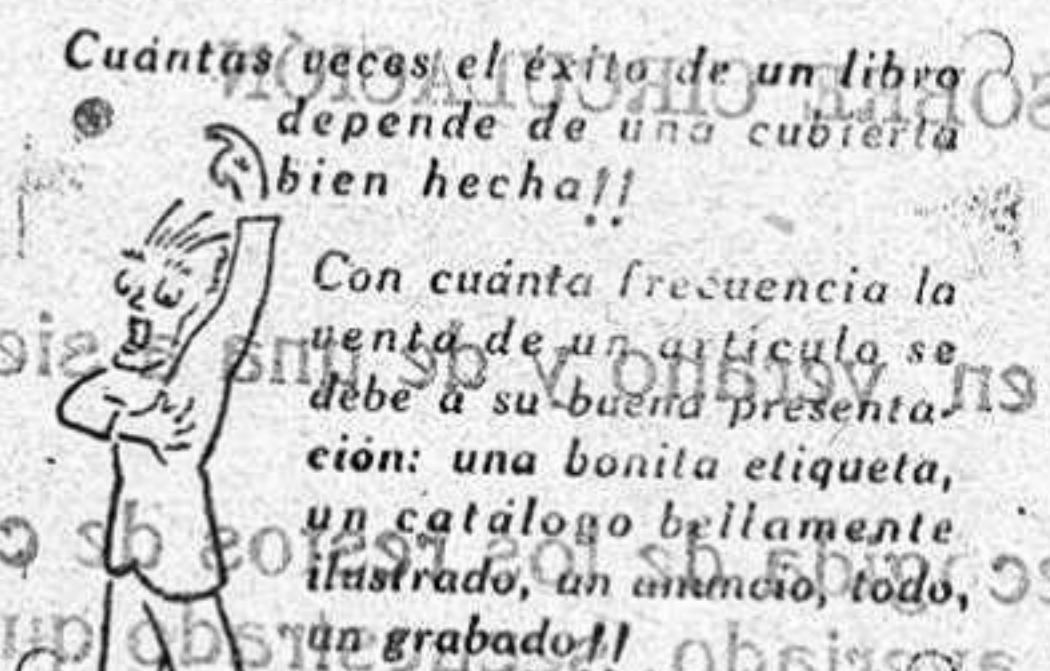 Cuántas veces el éxito de un libro
depende de una cubierta
bien hecha!!
Con cuánta frecuencia la
venta de un artículo se
debe a su buena presenta-
ción: una bonita etiqueta,
un catálogo bellamente
ilustrado, un anuncio, todo,
un grabado!!